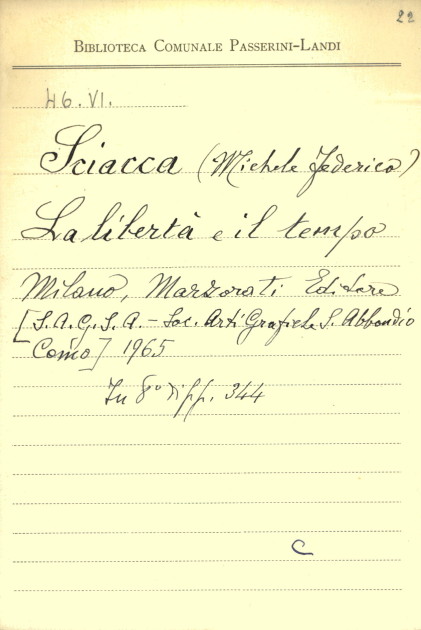 22
BIBLIOTECA COMUNALE PASSERINI-LANDI
46.VI.
Sciacca (Michele Federico)
La libertà e il tempo
Milano, Marzorati Editore
[S.A.G.S.A. - Soc. Arti Grafiche S. Abbondio
Como] 1965
In 8° di pp. 344
C